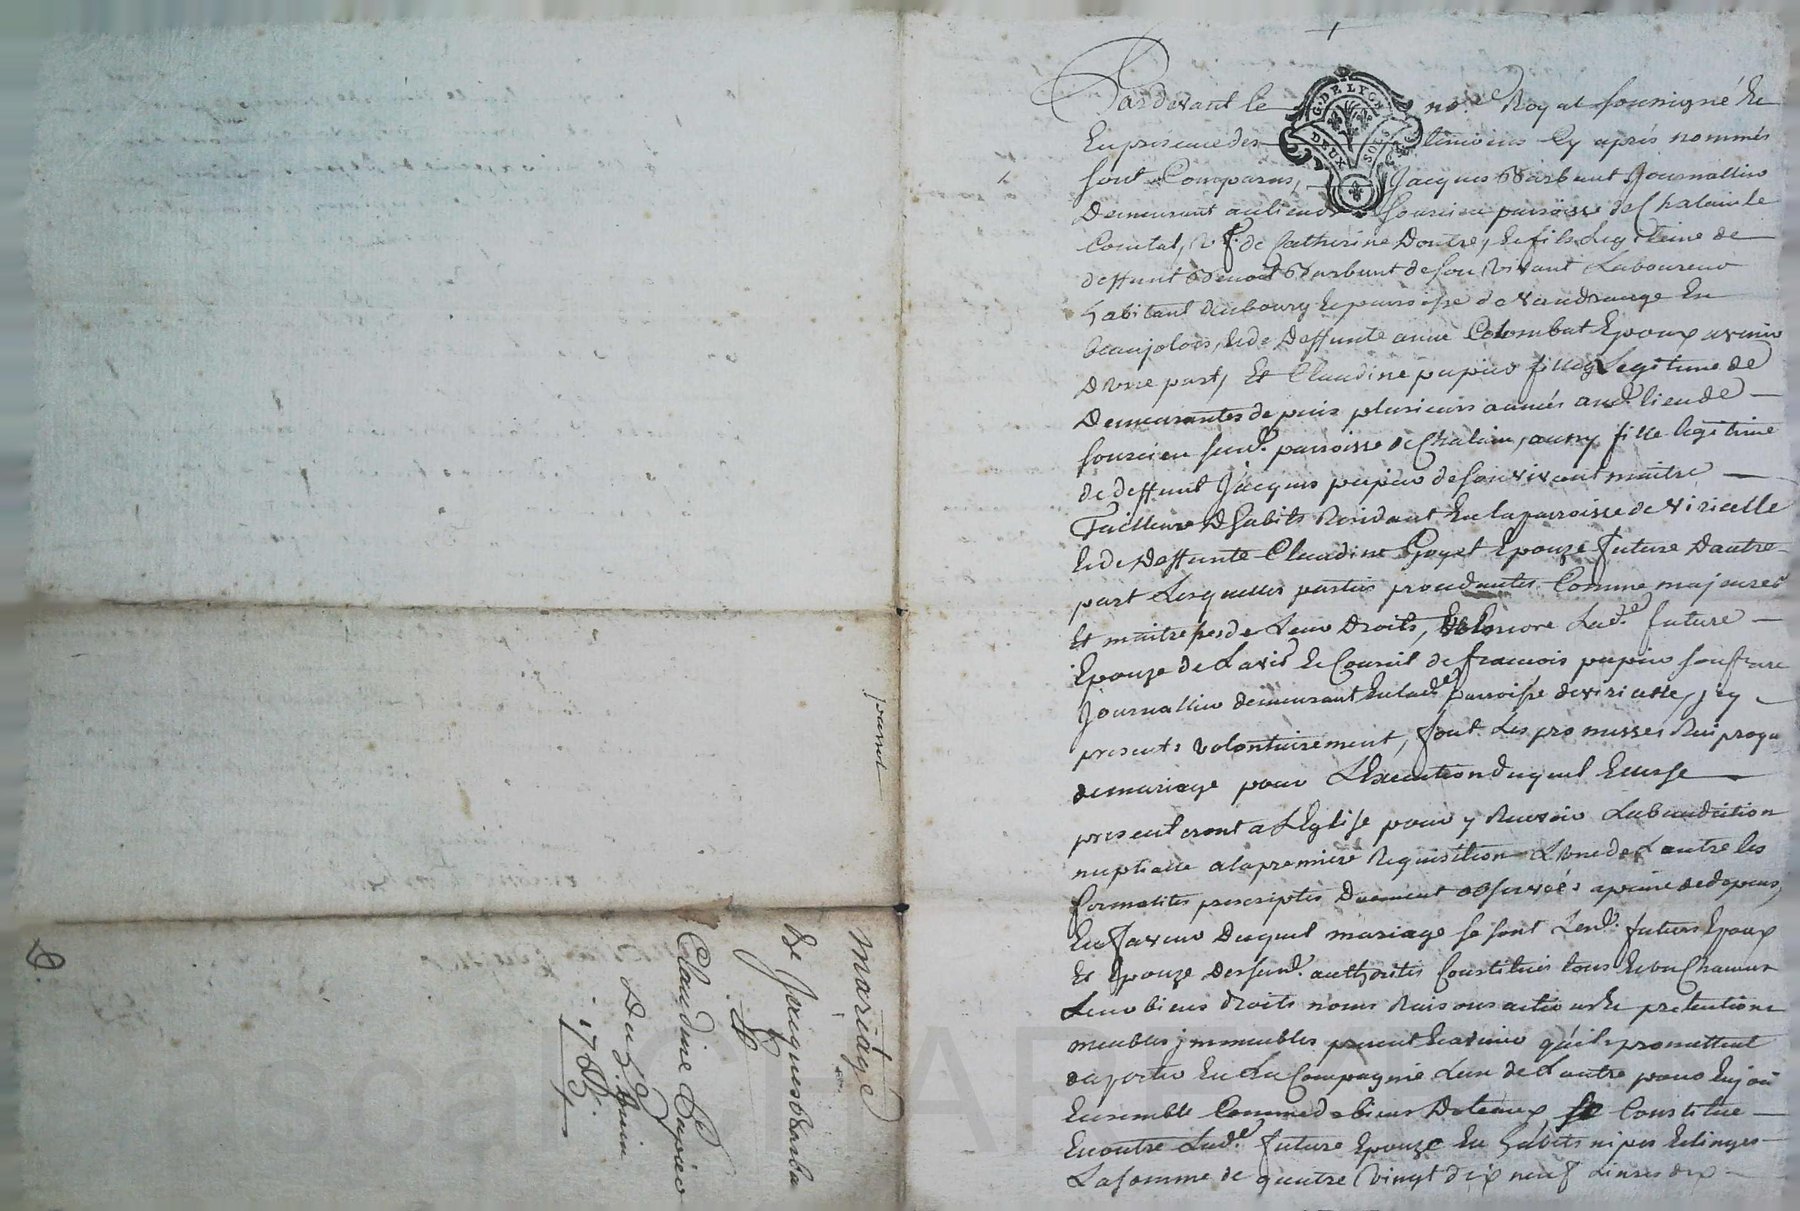 Pardevant le no.re Royal soussigné Et
G. DE LYON
DEUX SOLS
En presence des temoins Cy après nommés
sont Comparus, Jacques Barbant Journallier
Demeurant au lieu de Sourcieu parroisse de Chalain le
Comtal, de Catherine Doutre, Le fils Legitime de
deffunt Benoit Barbant de son vivant Laboureur
habitant du bourg Et parroisse de Vaudrange En
beaujolois, Et de Deffunte anne Colombat Epoux avenir
D'une part, Et Claudine papier fille Legitime de
Demeurantes depuis plusieurs années aud. lieu de
sourcieu susd. parroisse de Chalain, aussy fille legitime
de deffunt Jacques papier de son vivant maitre
Tailleur D'habits Residant En la parroisse de Viricelle
Et de Deffunte Claudine Goyet Epouze future D'autre
part Lesquelles parties procedantes Comme majeures
Et maitresses de Leur Droits, Encore Lad.e future
Epouze de L'avis Et Conseil de francois papier son frere
Journallier demeurant En lad.e parroisse de viricelle, icy
presents volontairement, font Les promesses Reciproque
de mariage pour L'Execution duquel Elles se
presenteront a L'Eglise pour y Recevoir La benediction
nuptialle a la premiere Requisition L'une de L'autre les
formalités prescriptes Duement observées a peine de depens,
En faveur Duquel mariage se sont Lesd. futurs Epoux
Et Epouze Dessusd. authorités Constitués tous Et un Chacun
Leur biens droits noms Raisons actions Et pretentions
meubles immeubles present Et avenir qu'ils promettent
aporter En La Compagnie L'un de L'autre pour En jouir
Ensemble Comme de biens Doteaux, se Constitue
En outre Lad.e future Epouze En habits nipes Et linges
La somme de quatre Vingt dix neuf Livres dix
mariage
De Jacques Barba
Et
Claudine Papier
Du 9. Juin